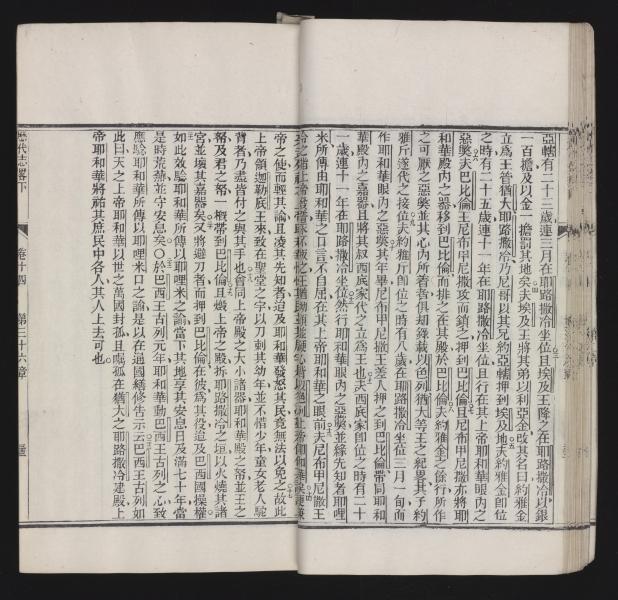 亞轄有二十三歲連三月在耶路撒冷坐位且埃及王降之在耶路撒冷以銀
一百擔及以金一擔罰其地矣夫埃及王將其弟以利亞金改其名曰約雅金
立爲王管猶大耶路撒冷乃尼哥以其兄約亞轄押到埃及地夫約雅金卽位
之時有二十五歲連十一年在耶路撒冷坐位且行在其上帝耶和華眼內之
惡獎夫巴比倫王尼布甲尼撒攻而鎖之押到巴比倫且尼布甲尼撒亦將耶
和華殿內之器移到巴比倫而排之在其殿於巴比倫夫約雅金之餘行所作
之可厭之惡獎並其心內所著者俱却錄載以色列猶大等王之紀畧其子約
雅斤遂代之接位夫約雅斤卽位之時有八歲在耶路撒冷坐位三月一旬而
作耶和華眼內之惡獎其年畢尼布甲尼撒王差人押之到巴比倫帶同耶和
華殿內之嘉器且將其叔西底家代之立爲王也夫西底家卽位之時有二十
一歲連十一年在耶路撒冷坐位然行耶和華眼內之惡獎並緣先知者耶哩
米所傳由耶和華之口言不自屈在其上帝耶和華之眼前夫尼布甲尼撒王
帝之使而輕其諭且凌其先知者迨及耶和華發怒其民竟無法以免之故此
上帝領迦勒底王來致在聖堂之宇以刀刺其幼年並不惜少年童女老人駝
背者乃盡皆付之與其手也會同上帝殿之大小諸器耶和華殿之帑並王之
帑及君之帑一概帶到巴比倫且燬上帝之殿拆耶路撒冷之垣以火燒其諸
宮並壞其嘉器矣又將避刀者而押到巴比倫在彼爲其役迨及巴西國操權
如此效驗耶和華所傳以耶哩米之諭當下其地享其安息日及滿七十年當
是時荒蕪並守安息矣〇於巴西王古列元年耶和華動巴西王古列之心致
應驗耶和華所傳以耶哩米口之諭是以在通國繕修告示云巴西王古列如
此曰天之上帝耶和華以世之萬國封孤且囑孤在猶大之耶路撒冷建殿上
帝耶和華將祐其庶民中各人其人上去可也
歷代志畧下 卷十四 第三十六章